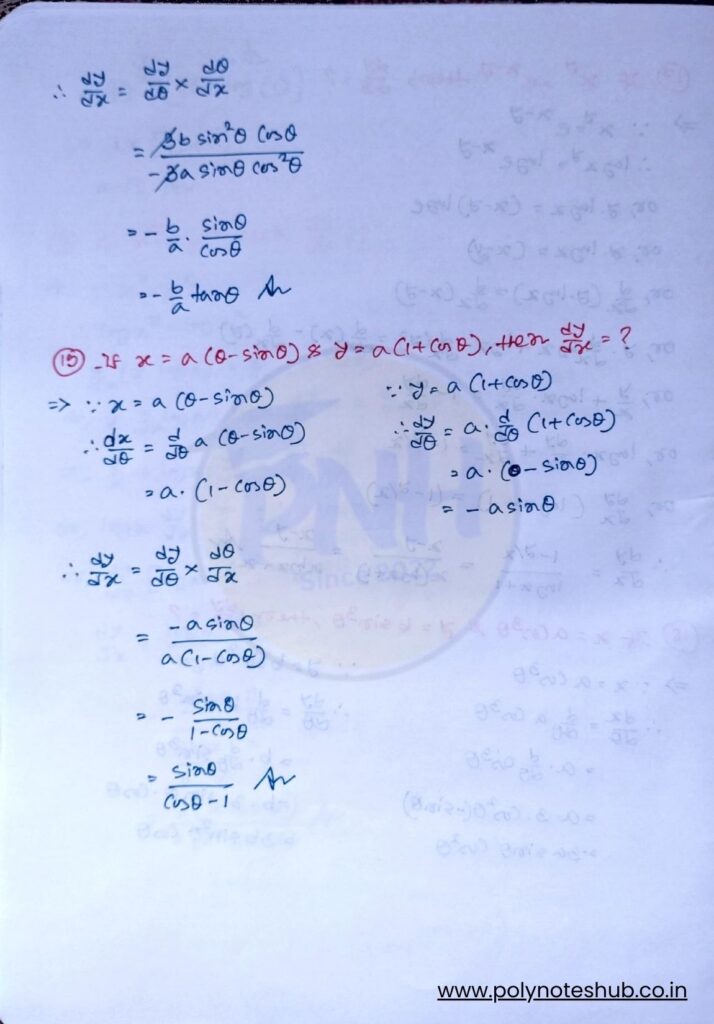 ∴ dy/dx = dy/dθ × dθ/dx
= 3b sin²θ cosθ / -3a sinθ cos²θ
= - b/a . sinθ/cosθ
= - b/a tanθ An
(15) If x = a (θ-sinθ) & y = a (1+cosθ), then dy/dx = ?
=> ∵ x = a (θ-sinθ)
∴ dx/dθ = d/dθ a (θ-sinθ)
= a. (1-cosθ)
∵ y = a (1+cosθ)
∴ dy/dθ = a. d/dθ (1+cosθ)
= a. (0-sinθ)
= - a sinθ
∴ dy/dx = dy/dθ × dθ/dx
= -a sinθ / a(1-cosθ)
= - sinθ / 1-cosθ
= sinθ / cosθ-1 An
PNH
www.polynoteshub.co.in